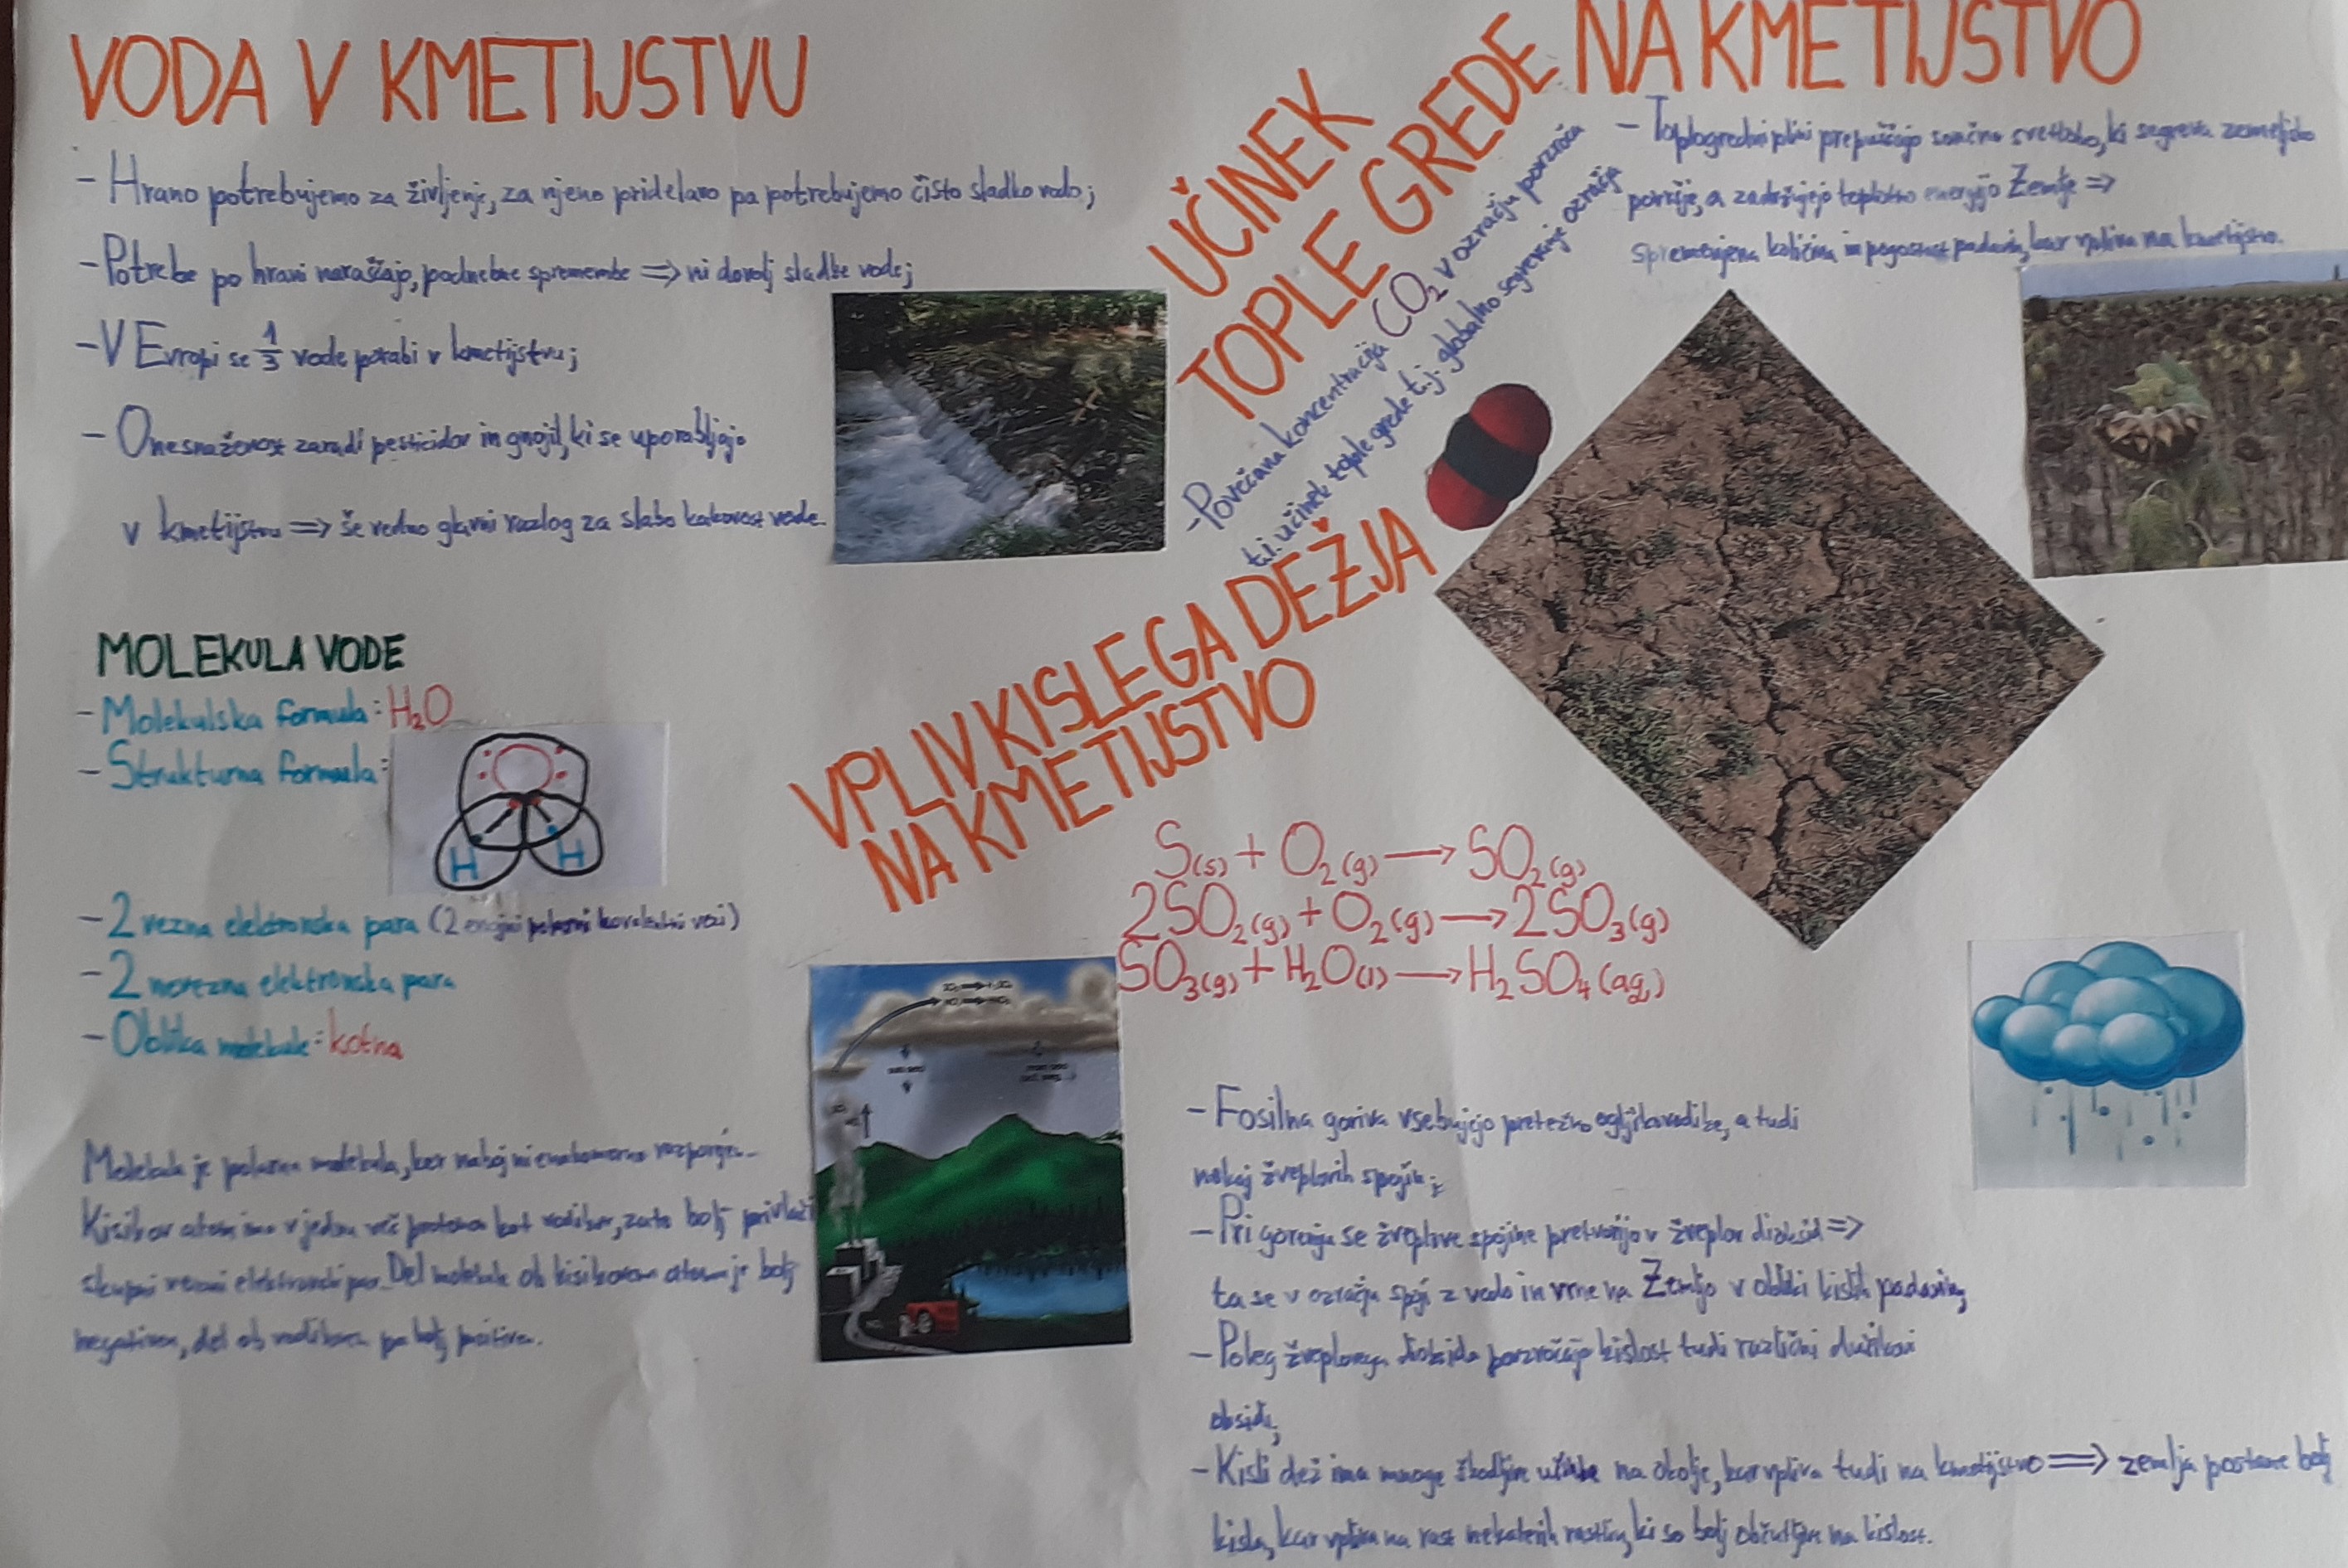 VODA V KMETIJSTVU
- Hrano potrebujemo za življenje, za njeno pridelavo pa potrebujemo čisto sladko vodo;
- Potrebe po hrani naraščajo, podnebne spremembe ⇒ ni dovolj sladke vode;
- V Evropi se 1/3 vode porabi v kmetijstvu;
- Onesnaženost zaradi pesticidov in gnojil, ki se uporabljajo
v kmetijstvu ⇒ še vedno glavni razlog za slabo kakovost vode.
MOLEKULA VODE
- Molekulska formula: H₂O
- Strukturna formula:
H H
- 2 vezna elektronska para (2 enojni polarni kovalentni vezi)
- 2 nevezna elektronska para
- Oblika molekule: kotna
Molekula je polarna molekula, ker naboj ni enakomerno razporejen.
Kisikov atom ima v jedru več protonov kot vodikov, zato bolj privlači
skupni vezni elektronski par. Del molekule ob kisikovem atomu je bolj
negativen, del ob vodikovem pa bolj pozitiven.
UČINEK
TOPLE GREDE NA KMETIJSTVO
- Povečana koncentracija CO₂ v ozračju povzroča
t.i. učinek tople grede t.j. globalno segrevanje ozračja
- Toplogredni plini prepuščajo sončno svetlobo, ki segreva zemeljsko
površje, a zadržujejo toplotno energijo Zemlje ⇒
spremenjena količina in pogostost padavin, kar vpliva na kmetijstvo.
VPLIV KISLEGA DEŽJA
NA KMETIJSTVO
S(s) + O₂(g) → SO₂(g)
2SO₂(g) + O₂(g) → 2SO₃(g)
SO₃(g) + H₂O(l) → H₂SO₄(aq)
- Fosilna goriva vsebujejo pretežno ogljikovodike, a tudi
nekaj žveplovih spojin;
- Pri gorenju se žveplove spojine pretvorijo v žveplov dioksid ⇒
ta se v ozračju spoji z vodo in vrne na Zemljo v obliki kislih padavin;
- Poleg žveplovega dioksida povzročajo kislost tudi različni dušikovi
oksidi;
- Kisli dež ima mnoge škodljive učinke na okolje, kar vpliva tudi na kmetijstvo ⇒ zemlja postane bolj
kisla, kar vpliva na rast nekaterih rastlin, ki so bolj občutljive na kislost.